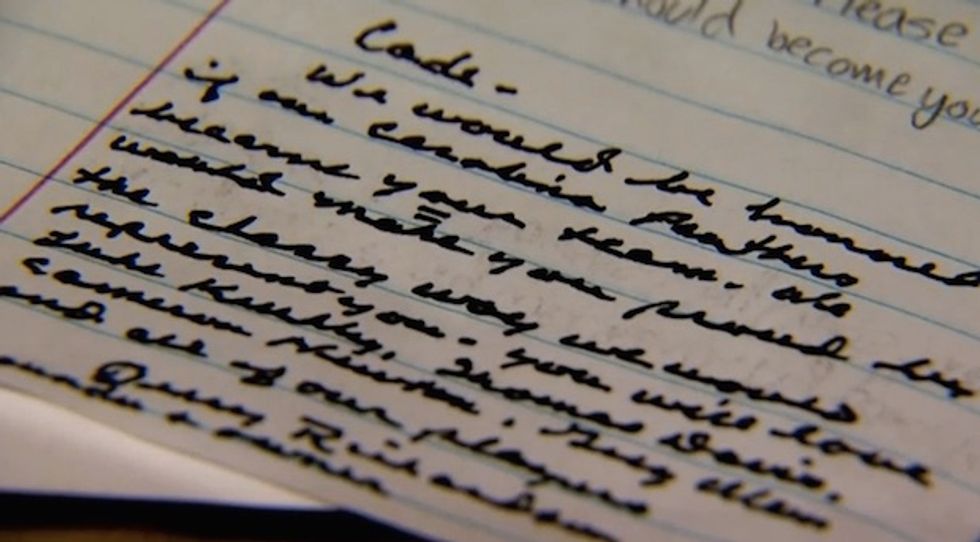 Please
hould become you
Cade -
We would be honored
if our carolina Panthers
became your team. We
would make you proud by
the classy way we would
represent you - you will love
Luke Kuechly, Thomas Davis,
Cameron Newton, Greg Olsen
and all of our players
Jerry Richardson
& owner